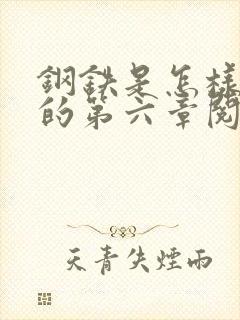 鋼鉄是怎樣
的第六章閱
天青失煙雨